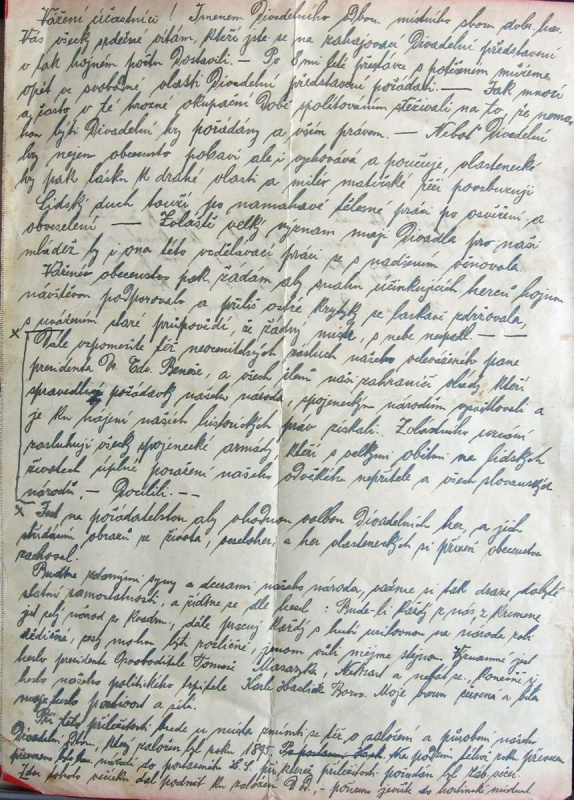 Vážení účastníci! Jmenem Divadelního Odboru místního sboru dobr. has.
Vás všecky srdečně vítám, kteří jste se na zahajovací Divadelní představení
v tak hojném počtu Dostavili. — Po 8mi leté přestávce s potěšením můžeme
opět ve svobodné vlasti Divadelní představení pořádati. — Jak mnozí
a často v té hrozné okupační Době s politováním stěžovali na to, že nemo-
hou býti Divadelní hry pořádány a vším právem. — Neboť Divadelní
hry nejen obecenstvo pobaví ale i vychovává a poučuje, vlastenecké
hry pak lásku k drahé vlasti a milé mateřské řeči povzbuzují
Lidský duch touží po namahavé tělesné práci po osvěžení a
obveselení — Zvláště velký význam mají Divadla pro naši
mládež by i ona této vzdělavací práci se s nadšením věnovala
Vážené obecenstvo pak žádám aby snahu účinkujících herců hojnou
návštěvou podporovalo a příliš ostré krytyky se laskavě zdrželo,
s uvážením staré přísloví, že žádný mistr, s nebe nespadl. — —
x Dále vzpomeňte též neocenitelných zásluh našeho pane
presidenta Dr. Edv. Beneše, a všech členů naší zahraniční vlády, kteří
spravedlivé požádavky našeho národa, spojeneckým národům vysvětlovali a
je ku hájení našich historických práv získali. Zvláštního uznání
zasluhují všecky spojenecké armády, kteří s velkými oběťmi na lidských
životech úplné poražení našeho odvěkého nepřítele a všech slovanských
národů, — Docílili. — —
x Jest na pořadatelstvu aby vhodnou volbou Divadelních her, a jich
střídáním obrazů ze života, veseloher, a her vlasteneckých si přízeň obecenstva
zachoval.
Buďme vdornými syny a dcerami našeho národa, važme si tak draze dobyté
statní samostatnosti, a řiďme se dle hesel: Bude-li každý z nás z kremene
jest celý národ z kvadrů, dále pracuj každý s chutí usilovnou na národu roli
dědičné, cesty mohou býti rozličné, jenom vůli mějme stejnou. Významné jest
heslo presidenta Osvoboditele Tomáše Masaryka, Nebát se a nekrást, konečně jest
heslo našeho politického buditele Karla Havlíčka Borov. Moje barva červená a bílá
moje heslo poctivost a síla.
Při této příležitosti bude u místa zmíniti se též o založení a působení našeho
Divadelní Odboru, který založen byl roku 1895.